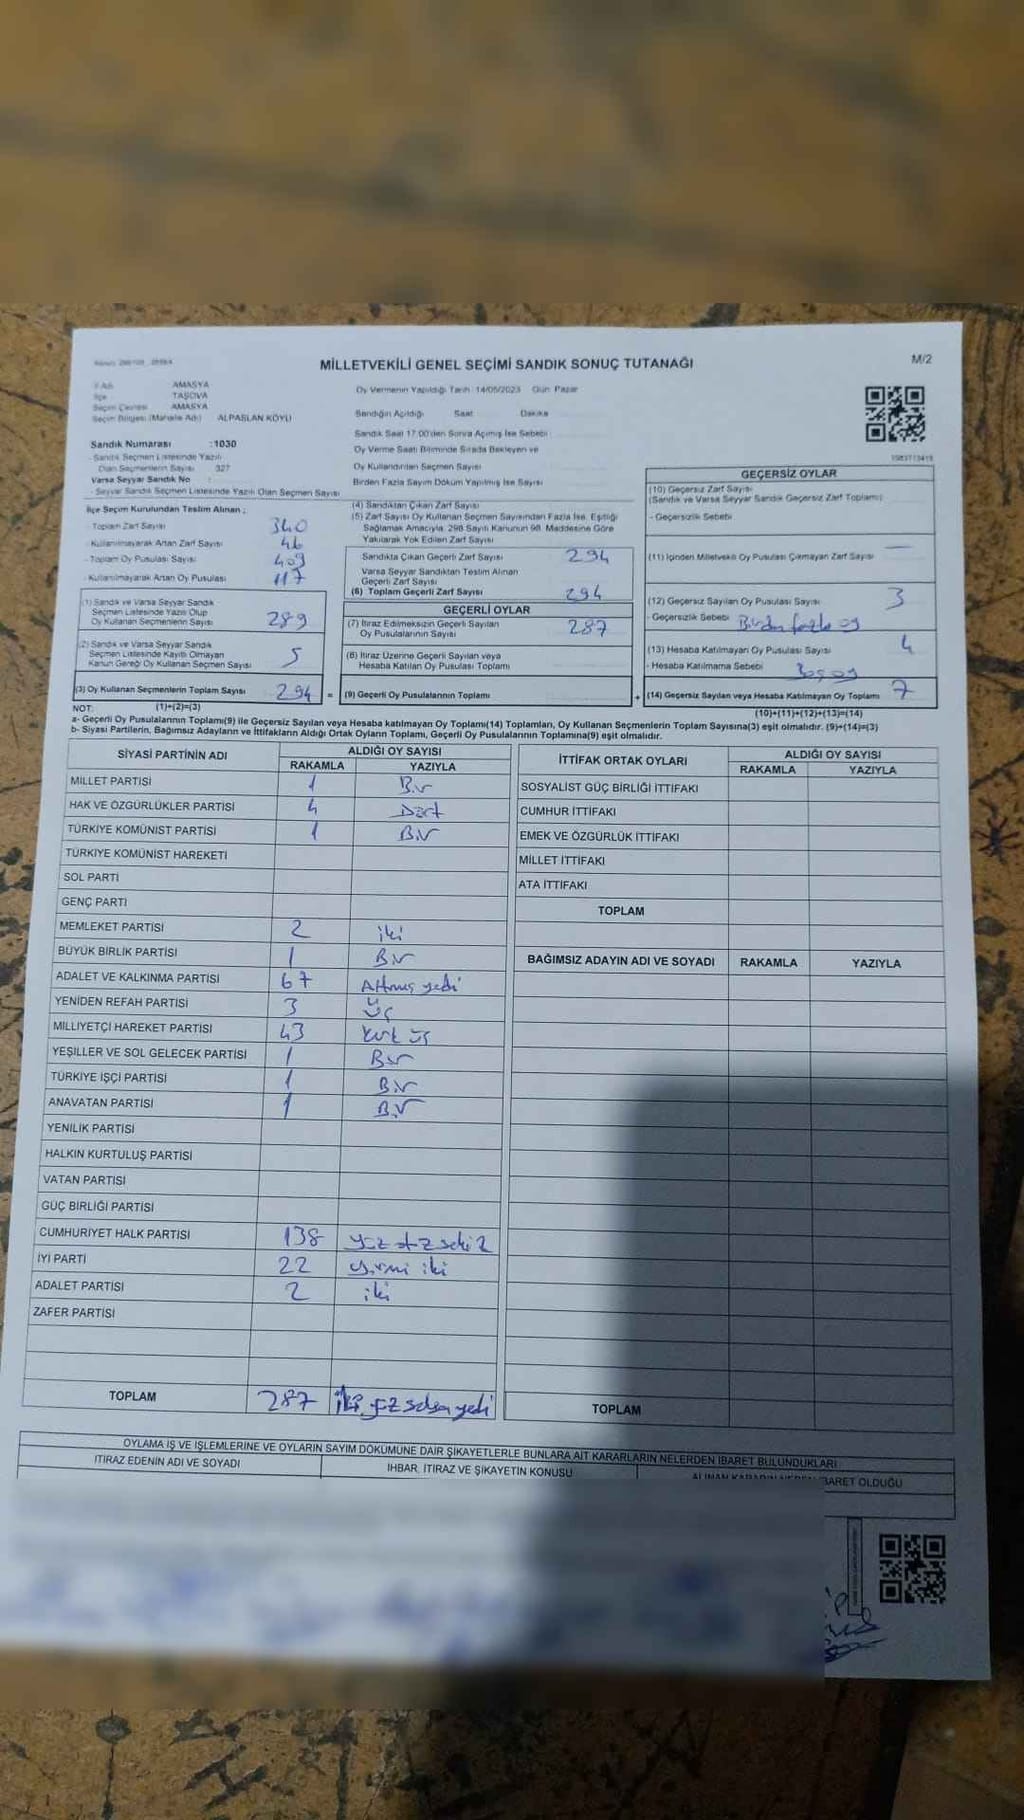 MİLLETVEKİLİ GENEL SEÇİMİ SANDIK SONUÇ TUTANAĞI
M/2
İl Adı AMASYA
İlçe TAŞOVA
Seçim Çevresi AMASYA
Seçim Bölgesi (Mahalle Adı) ALPASLAN KÖYÜ
Sandık Numarası :1030
- Sandık Seçmen Listesinde Yazılı
Olan Seçmenlerin Sayısı 327
Varsa Seyyar Sandık No
- Seyyar Sandık Seçmen Listesinde Yazılı Olan Seçmen Sayısı
İlçe Seçim Kurulundan Teslim Alınan ;
- Toplam Zarf Sayısı 340
- Kullanılmayarak Artan Zarf Sayısı 46
- Toplam Oy Pusulası Sayısı 409
- Kullanılmayarak Artan Oy Pusulası 117
(1) Sandık ve Varsa Seyyar Sandık
Seçmen Listesinde Yazılı Olup
Oy Kullanan Seçmenlerin Sayısı 289
(2) Sandık ve Varsa Seyyar Sandık
Seçmen Listesinde Kayıtlı Olmayan
Kanun Gereği Oy Kullanan Seçmen Sayısı 5
(3) Oy Kullanan Seçmenlerin Toplam Sayısı 294 =
Oy Vermenin Yapıldığı Tarih 14/05/2023 Gün Pazar
Sandığın Açıldığı Saat Dakika
Sandık Saat 17:00'den Sonra Açılmış İse Sebebi
Oy Verme Saati Bitiminde Sırada Bekleyen ve
Oy Kullandırılan Seçmen Sayısı
Birden Fazla Sayım Döküm Yapılmış İse Sayısı
(4) Sandıktan Çıkan Zarf Sayısı
(5) Zarf Sayısı Oy Kullanan Seçmen Sayısından Fazla İse, Eşitliği
Sağlamak Amacıyla, 298 Sayılı Kanunun 98. Maddesine Göre
Yakılarak Yok Edilen Zarf Sayısı
Sandıkta Çıkan Geçerli Zarf Sayısı 294
Varsa Seyyar Sandıktan Teslim Alınan
Geçerli Zarf Sayısı
(6) Toplam Geçerli Zarf Sayısı 294
GEÇERLİ OYLAR
(7) İtiraz Edilmeksizin Geçerli Sayılan
Oy Pusulalarının Sayısı 287
(8) İtiraz Üzerine Geçerli Sayılan veya
Hesaba Katılan Oy Pusulası Toplamı
(9) Geçerli Oy Pusulalarının Toplamı +
GEÇERSİZ OYLAR
(10) Geçersiz Zarf Sayısı
(Sandık ve Varsa Seyyar Sandık Geçersiz Zarf Toplamı)
- Geçersizlik Sebebi
(11) İçinden Milletvekili Oy Pusulası Çıkmayan Zarf Sayısı —
(12) Geçersiz Sayılan Oy Pusulası Sayısı 3
- Geçersizlik Sebebi Birden fazla oy
(13) Hesaba Katılmayan Oy Pusulası Sayısı 4
- Hesaba Katılmama Sebebi Boş oy
(14) Geçersiz Sayılan veya Hesaba Katılmayan Oy Toplamı 7
NOT: (1)+(2)=(3)
(10)+(11)+(12)+(13)=(14)
a- Geçerli Oy Pusulalarının Toplamı(9) ile Geçersiz Sayılan veya Hesaba katılmayan Oy Toplamı(14) Toplamları, Oy Kullanan Seçmenlerin Toplam Sayısına(3) eşit olmalıdır. (9)+(14)=(3)
b- Siyasi Partilerin, Bağımsız Adayların ve İttifakların Aldığı Ortak Oyların Toplamı, Geçerli Oy Pusulalarının Toplamına(9) eşit olmalıdır.
SİYASİ PARTİNİN ADI ALDIĞI OY SAYISI
RAKAMLA YAZIYLA
MİLLET PARTİSİ 1 Bir
HAK VE ÖZGÜRLÜKLER PARTİSİ 4 Dört
TÜRKİYE KOMÜNİST PARTİSİ 1 Bir
TÜRKİYE KOMÜNİST HAREKETİ
SOL PARTİ
GENÇ PARTİ
MEMLEKET PARTİSİ 2 iki
BÜYÜK BİRLİK PARTİSİ 1 Bir
ADALET VE KALKINMA PARTİSİ 67 Altmış yedi
YENİDEN REFAH PARTİSİ 3 üç
MİLLİYETÇİ HAREKET PARTİSİ 43 kırk üç
YEŞİLLER VE SOL GELECEK PARTİSİ 1 Bir
TÜRKİYE İŞÇİ PARTİSİ 1 Bir
ANAVATAN PARTİSİ 1 Bir
YENİLİK PARTİSİ
HALKIN KURTULUŞ PARTİSİ
VATAN PARTİSİ
GÜÇ BİRLİĞİ PARTİSİ
CUMHURİYET HALK PARTİSİ 138 yüz otuz sekiz
İYİ PARTİ 22 yirmi iki
ADALET PARTİSİ 2 iki
ZAFER PARTİSİ
TOPLAM 287 iki yüz seksen yedi
İTTİFAK ORTAK OYLARI ALDIĞI OY SAYISI
RAKAMLA YAZIYLA
SOSYALİST GÜÇ BİRLİĞİ İTTİFAKI
CUMHUR İTTİFAKI
EMEK VE ÖZGÜRLÜK İTTİFAKI
MİLLET İTTİFAKI
ATA İTTİFAKI
TOPLAM
BAĞIMSIZ ADAYIN ADI VE SOYADI RAKAMLA YAZIYLA
TOPLAM
OYLAMA İŞ VE İŞLEMLERİNE VE OYLARIN SAYIM DÖKÜMÜNE DAİR ŞİKAYETLERLE BUNLARA AİT KARARLARIN NELERDEN İBARET BULUNDUKLARI
İTİRAZ EDENİN ADI VE SOYADI İHBAR, İTİRAZ VE ŞİKAYETİN KONUSU ALINAN KARARIN NEDEN İBARET OLDUĞU